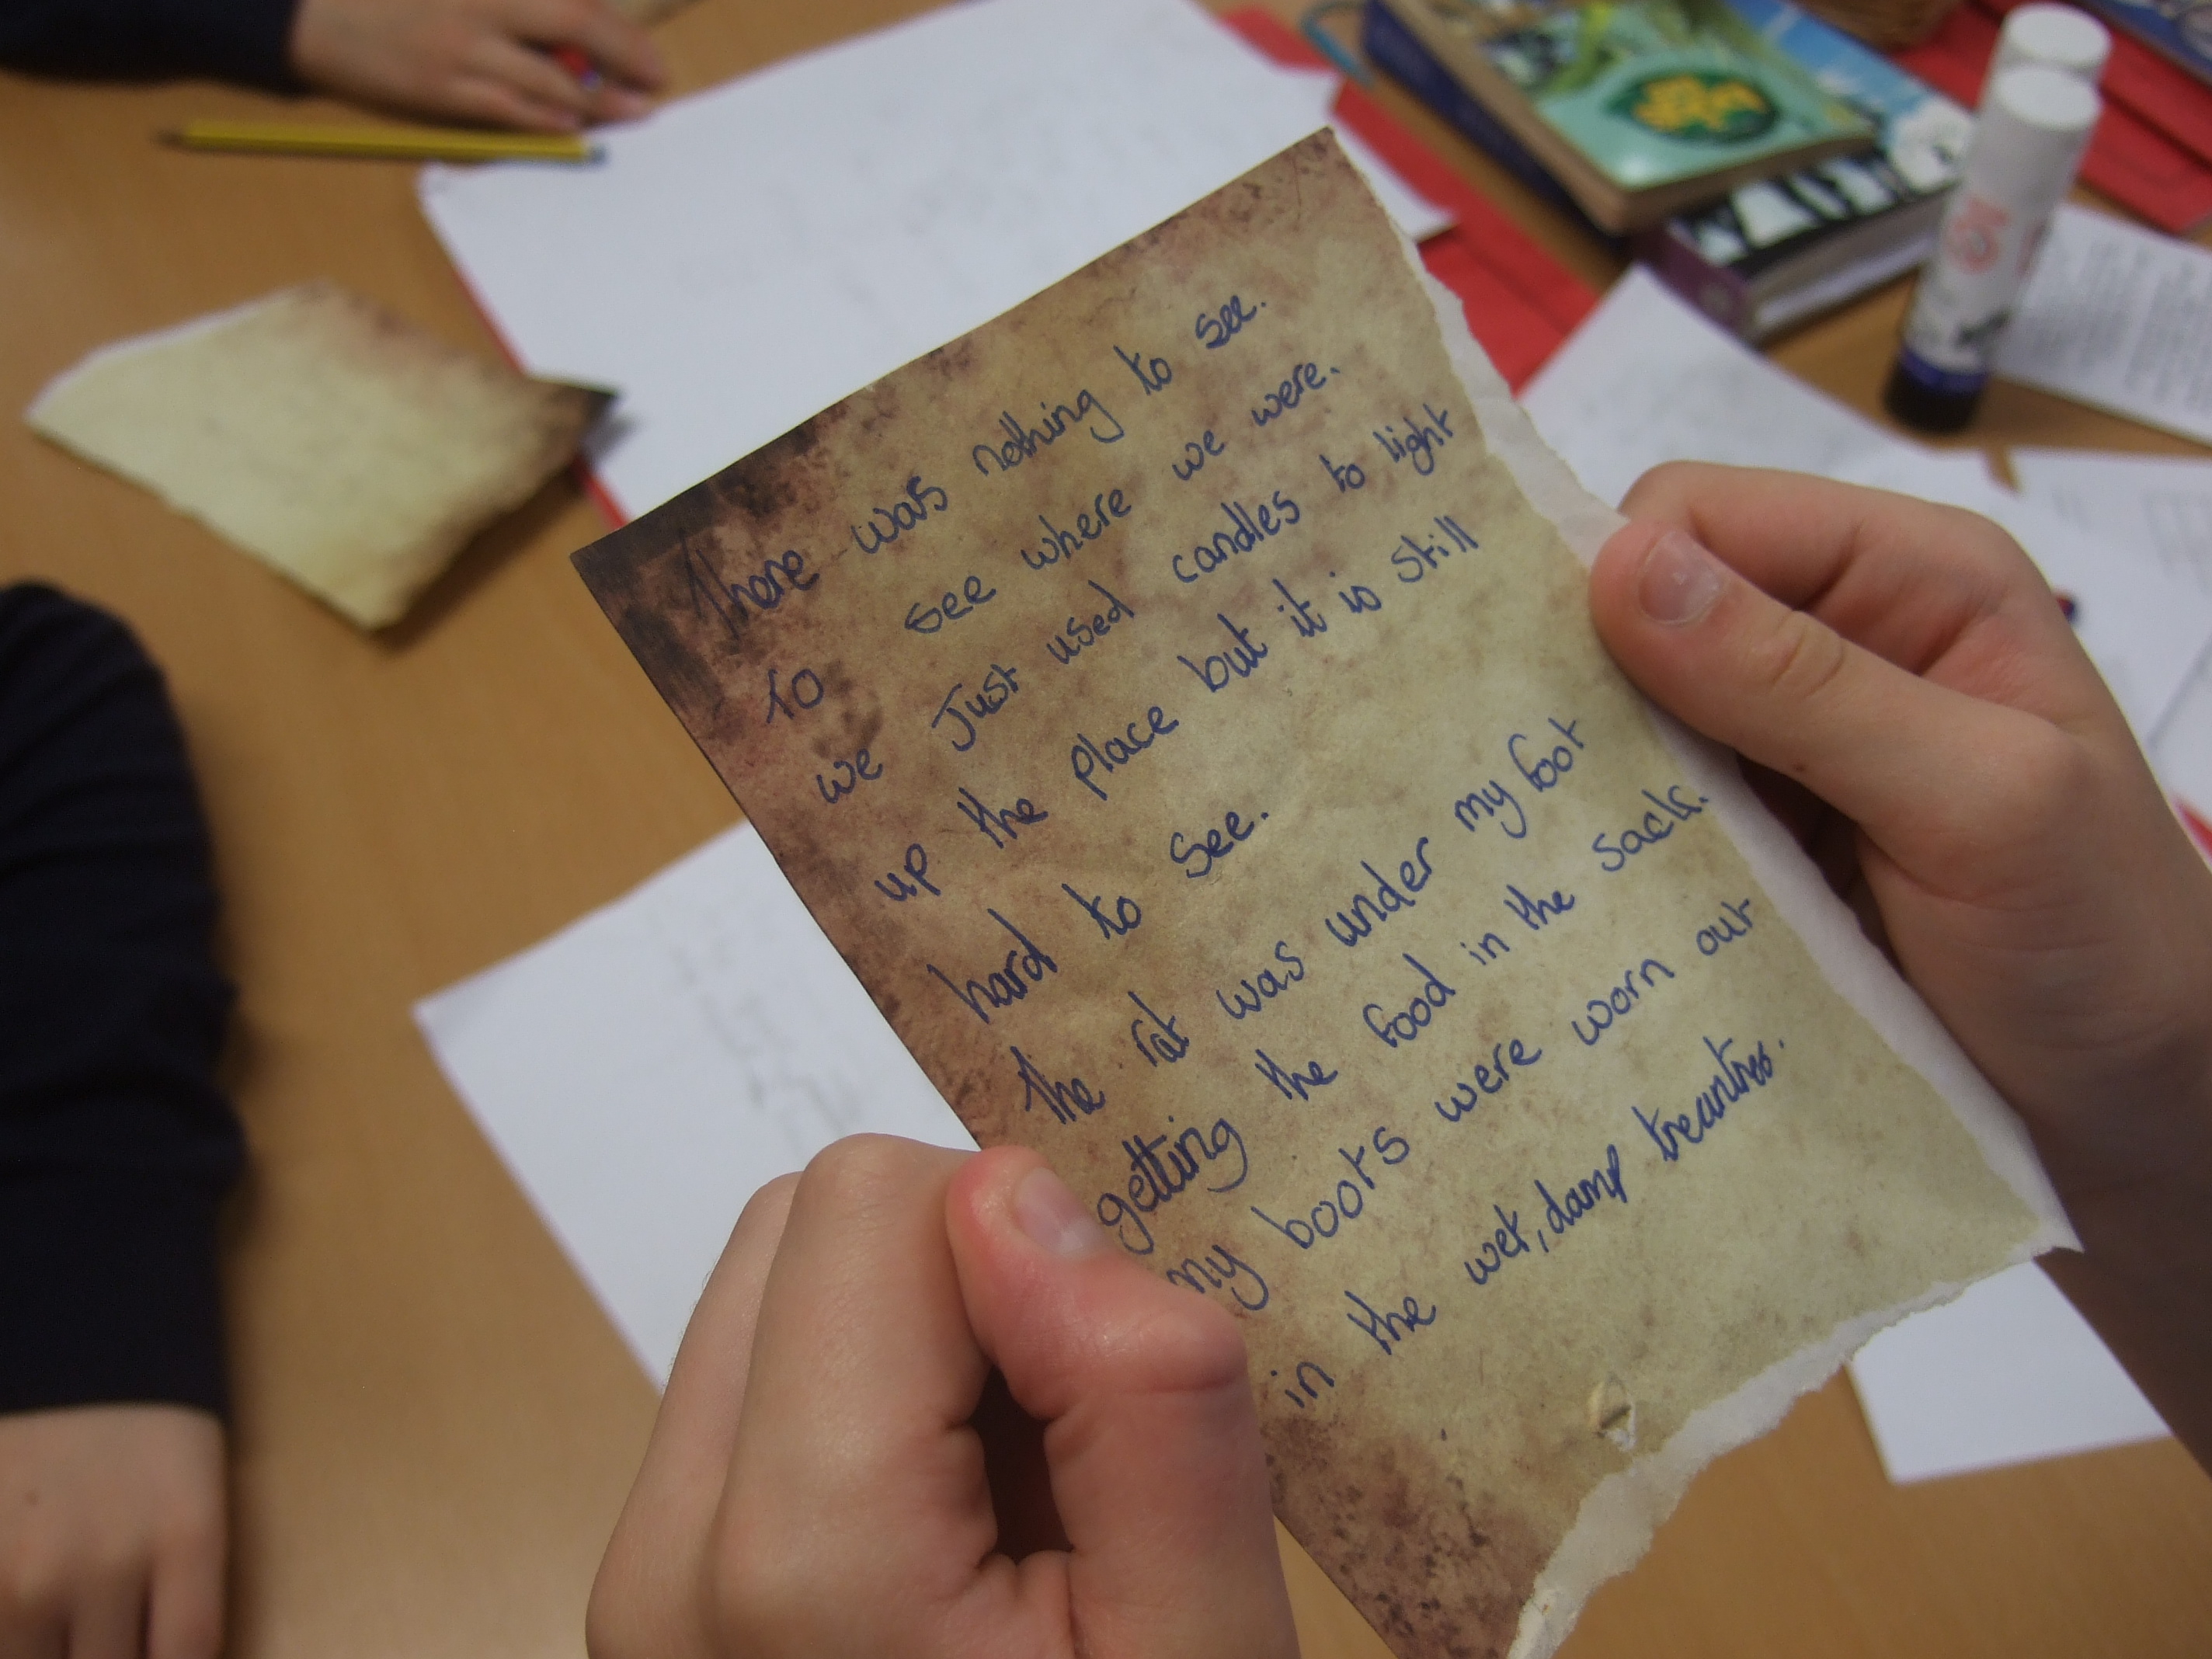 There was nothing to see.
To see where we were.
we Just used candles to light
up the place but it is still
hard to see.
The rat was under my foot
getting the food in the sack.
my boots were worn out
in the wet, damp treantres.